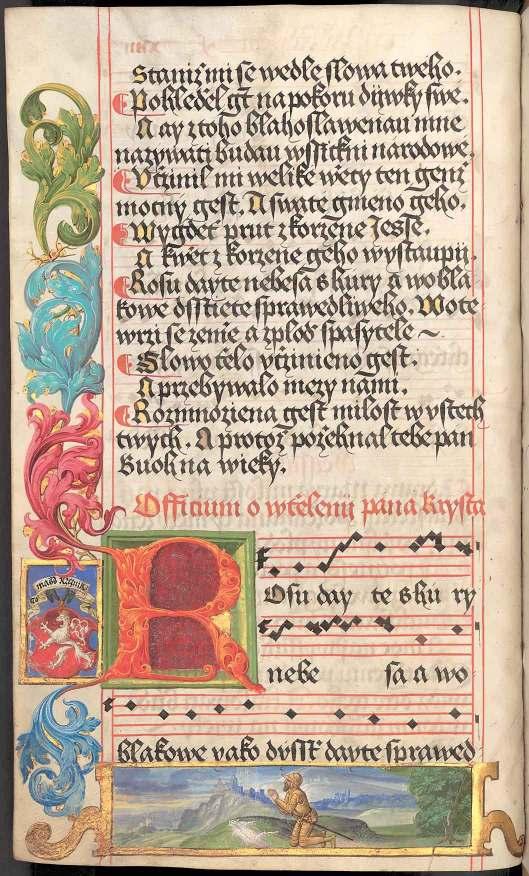 Staniž mi se wedle slowa tweho.
Pohledel gt na pokoru diewky swe.
A ay z toho blahoslawenau mne
nazywati budau wssickni narodowe.
Vczinil mi welike wecy ten genz
mocny gest. A swate gmeno geho.
Wygdet prut z korzene Jesse.
A kwet z korzene geho wystaupij.
Rosu dayte nebesa s hury a wobla
kowe dsstiete sprawedliweho. Wote
wrzi se zemie a zplod spasytele ~
Slowo tielo vczinieno gest.
A przebywalo mezy nami.
Rozmnoziena gest milost w vstech
twych. A protoz pozehnal tebe pan
Buoh na wieky.
Officium o wtielenij pana krysta
ROsu day te s hu ry
nebe sa a wo
blakowe yako dysst dayte sprawed